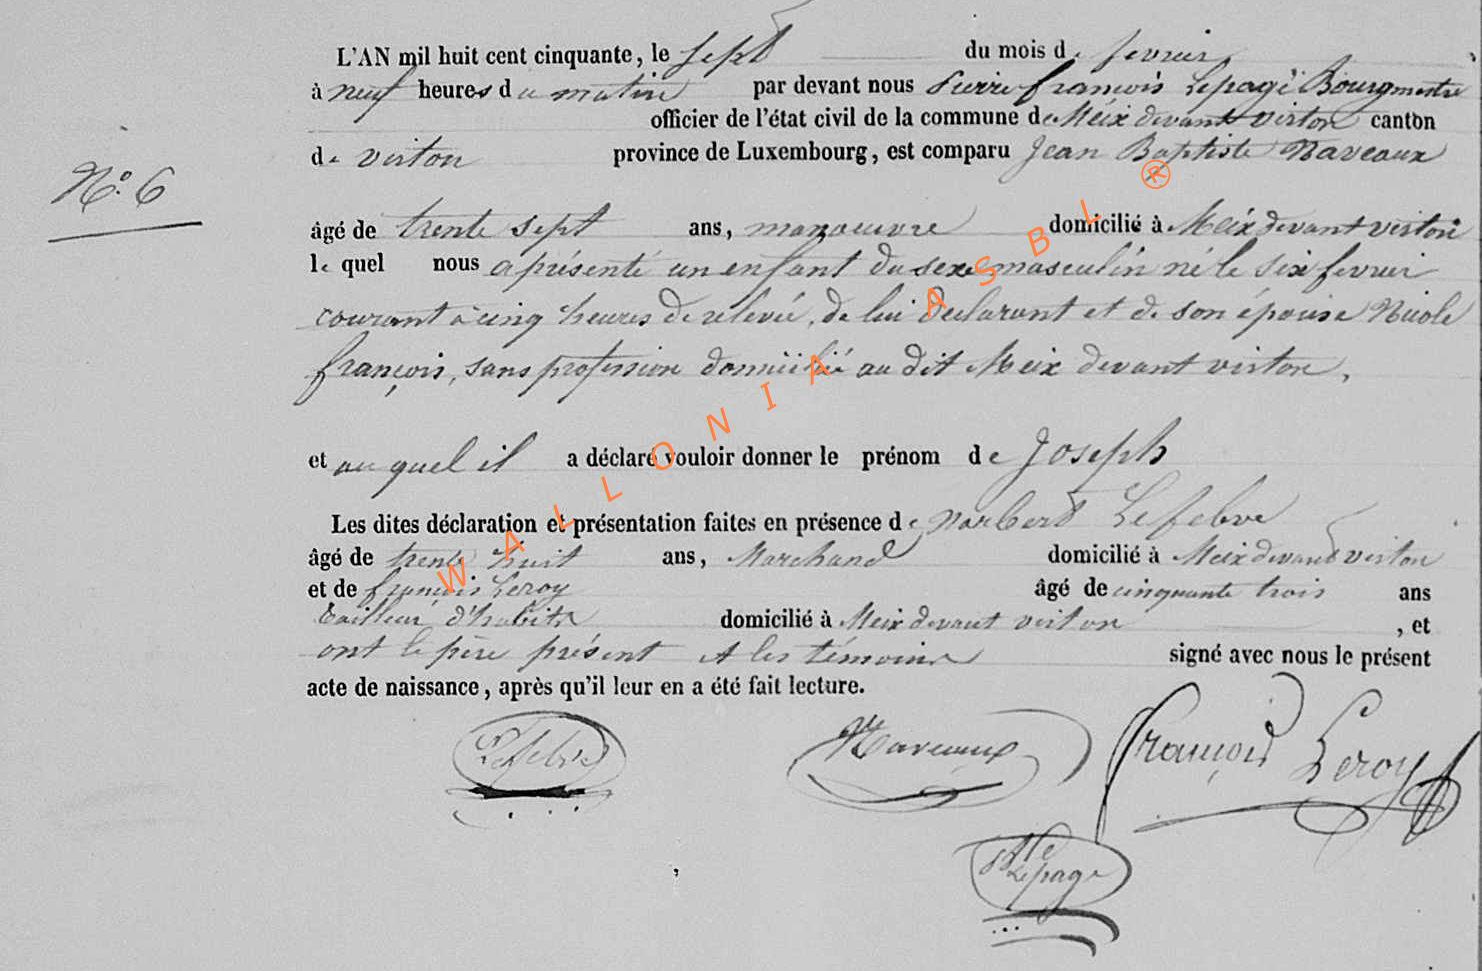 L'AN mil huit cent cinquante, le sept du mois de fevrier
à neuf heures du matin par devant nous Pierre françois Lepage Bourgmestre
officier de l'état civil de la commune de Meix devant virton canton
de virton province de Luxembourg, est comparu Jean Baptiste Naveaux
N.o 6
âgé de trente sept ans, manoeuvre domicilié à Meix devant virton
le quel nous a présenté un enfant du sexe masculin né le six fevrier
courant à cinq heures de relevée, de lui declarant et de son épouse Nicole
françois, sans profession domicilié au dit Meix devant virton,
et au quel il a déclaré vouloir donner le prénom de Joseph
Les dites déclaration et présentation faites en présence de Norbert Lefebve
âgé de trente huit ans, Marchand domicilié à Meix devant virton
et de françois Leroy âgé de cinquante trois ans
tailleur d'habits domicilié à Meix devant virton , et
ont le père présent et les témoins signé avec nous le présent
acte de naissance, après qu'il leur en a été fait lecture.
Lefebve Naveaux françois Leroy
Lepage
WALLONIA ASBL ®